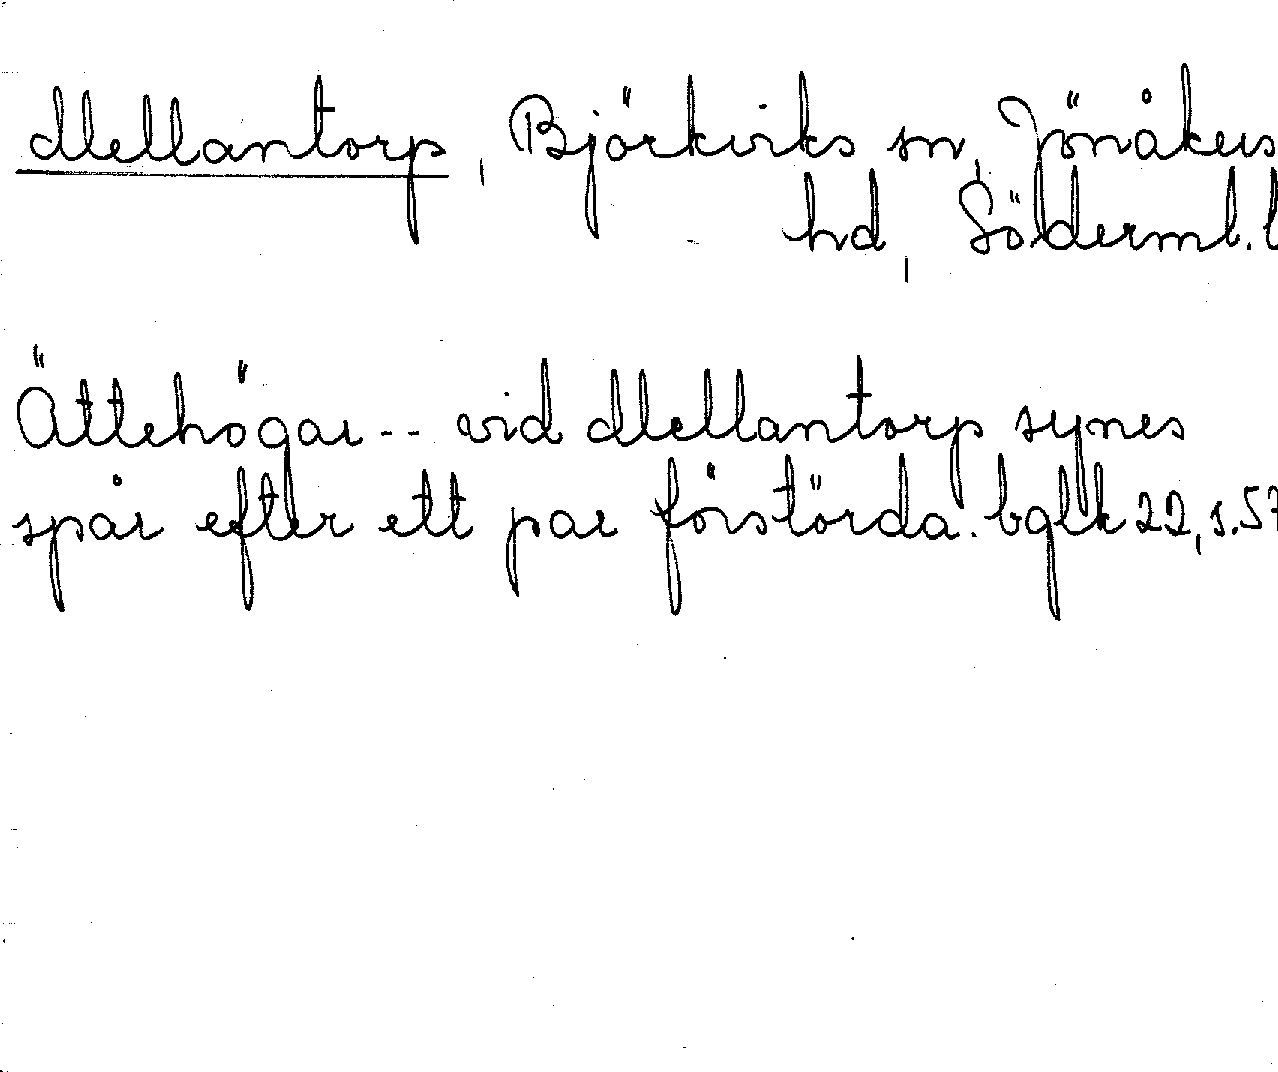 Mellantorp, Björkviks sn, Jönåkers
hd, Söderml. l
Ättehögar -- vid Mellantorp synes
spår efter ett par förstörda. bglk 22, s. 57